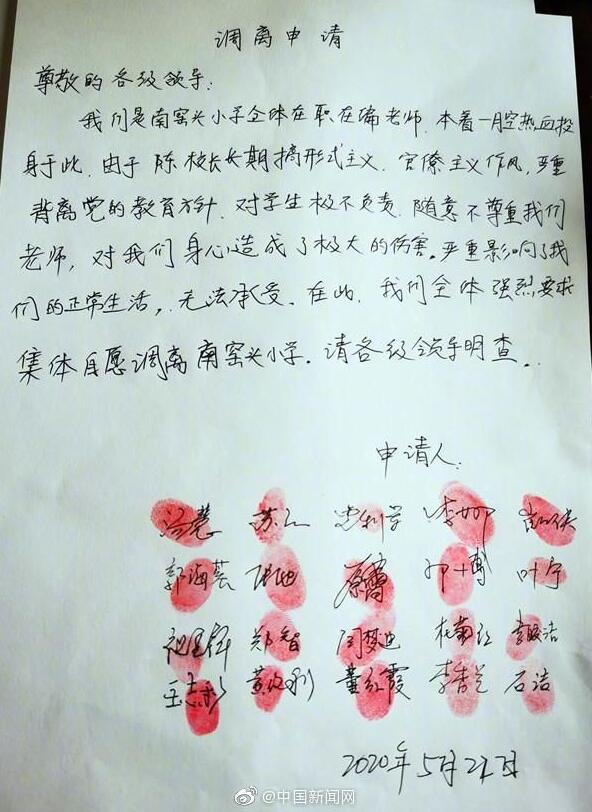 调离申请
尊敬的各级领导:
我们是南窑头小学全体在职在编老师.本着一腔热血投
身于此.由于陈校长长期搞形式主义.官僚主义作风,严重
背离党的教育方针.对学生极不负责.随意不尊重我们
老师,对我们身心造成了极大的伤害。严重影响了我
们的正常生活,无法承受.在此.我们全体强烈要求
集体自愿调离南窑头小学.请各级领导明查.
申请人:
李娜
郭海芸 叶宁
郑智 闫梦迪
董红霞 李香兰 石洁
2020年5月21日
@中国新闻网